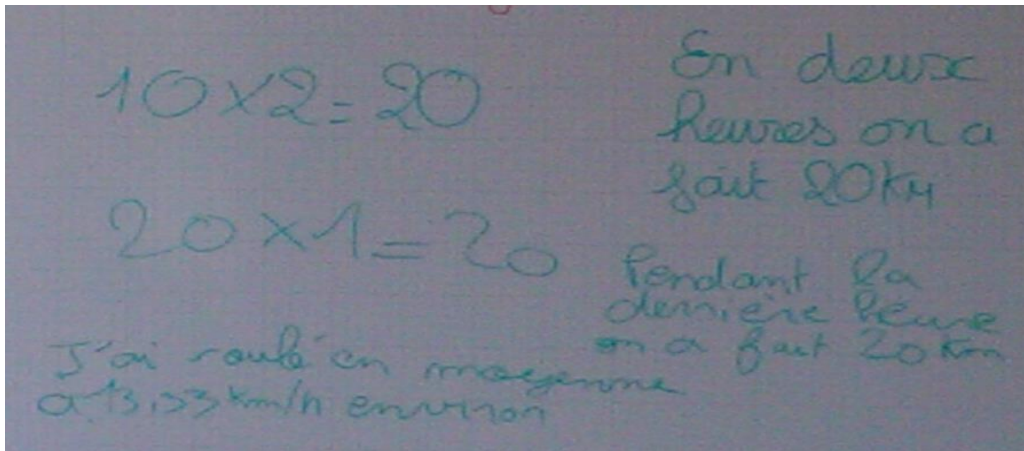 10×2=20
En deux
heures on a
fait 20Km
20×1=20
Pendant la
dernière heure
on a fait 20 Km
J'ai roulé en moyenne
a 13,33 km/h environ